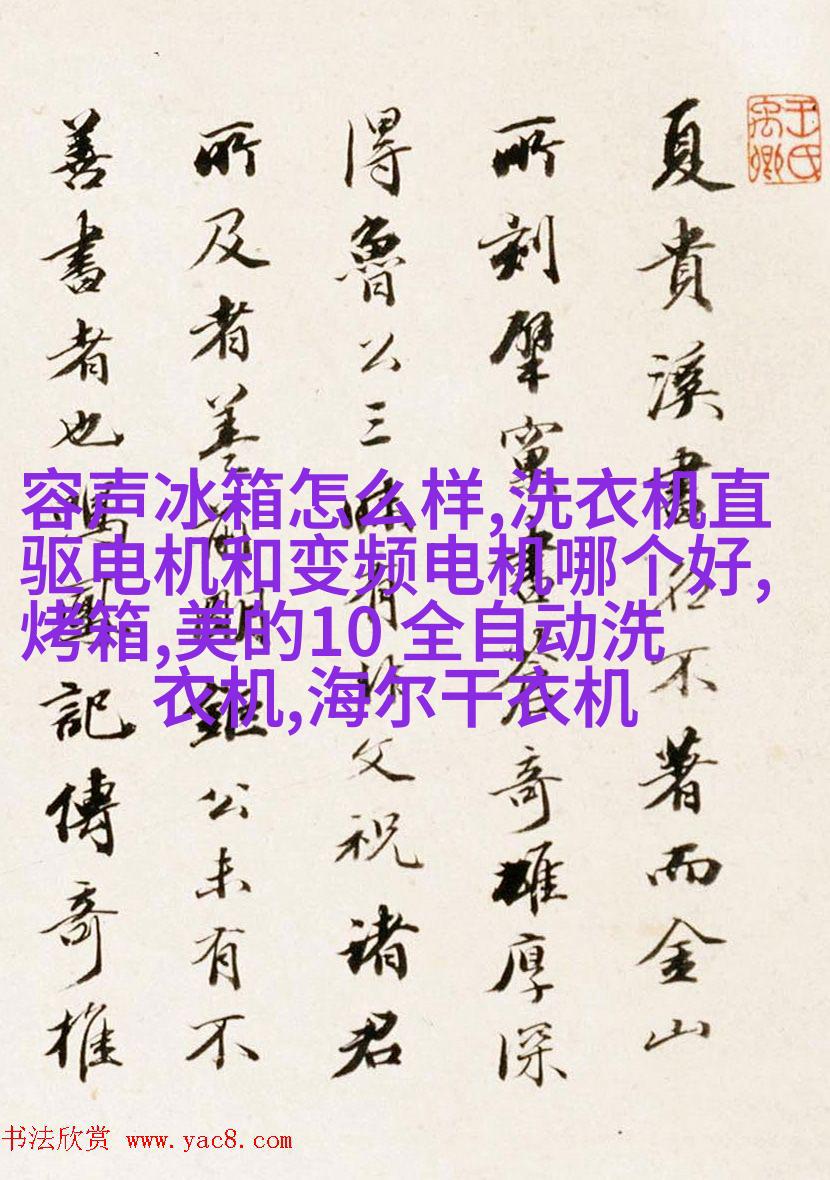 王氏
禹卿
夏貴溪書名不著而金山
所刻擘窠書奇雄厚深
得魯公三昧有非文祝諸君
所及者盖前明鉅公未有不
善書者也鳴鳳記傳奇推
容声冰箱怎么样,洗衣机直
驱电机和变频电机哪个好,
烤箱,美的10 全自动洗
衣机,海尔干衣机
书法欣赏 www.yac8.com